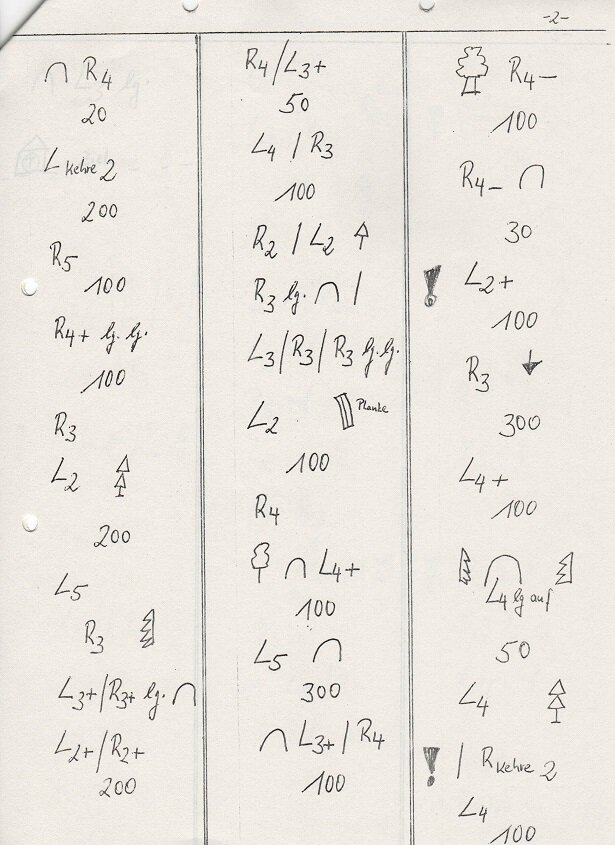 -2-
∩ R4
20
L Kehre 2
200
R5
100
R4+ lg. lg.
100
R3
L2
200
L5
R3
L3+/R3+ lg. ∩
L2+/R2+
200
R4/L3+
50
L4 / R3
100
R2 / L2
R3 lg. ∩ /
L3/R3/R3 lg. lg.
L2 Planke
100
R4
∩ L4+
100
L5 ∩
300
∩ L3+ / R4
100
R4-
100
R4- ∩
30
! L2+
100
R3 ↓
300
L4+
100
∩
L4 lg auf
50
L4
! / R Kehre 2
L4
100